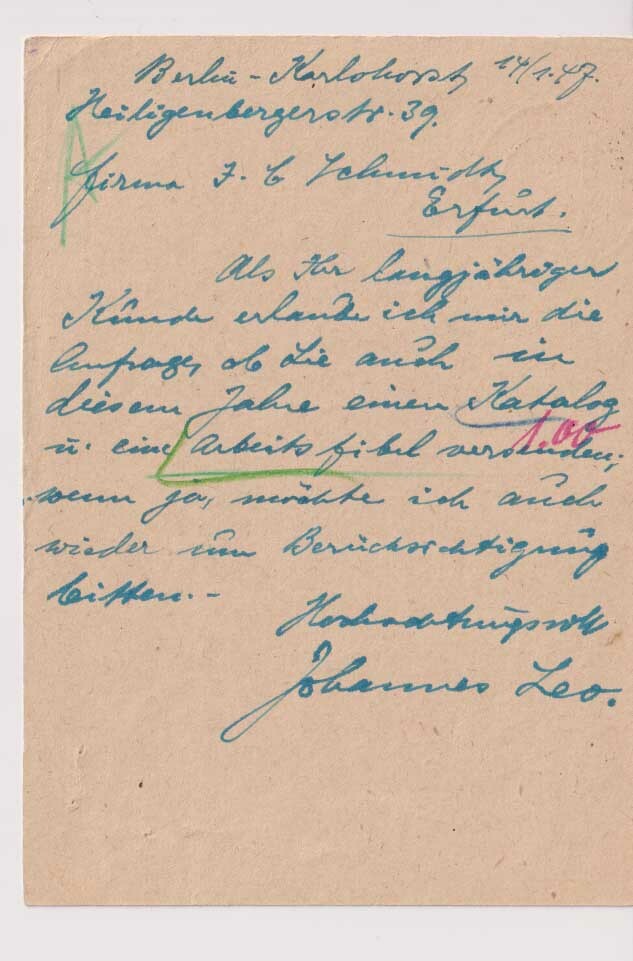 Berlin-Karlshorst, 14/1.47.
Heiligenbergerstr. 39.
Firma J. C Schmidt,
Erfurt.
Als Ihr langjähriger
Kunde erlaube ich mir die
Anfrage, ob Sie auch in
diesem Jahre einen Katalog
1.00
u. eine Arbeitsfibel versenden;
wenn ja, möchte ich auch
wieder um Berücksichtigung
bitten.-
Hochachtungsvoll
Johannes Leo.